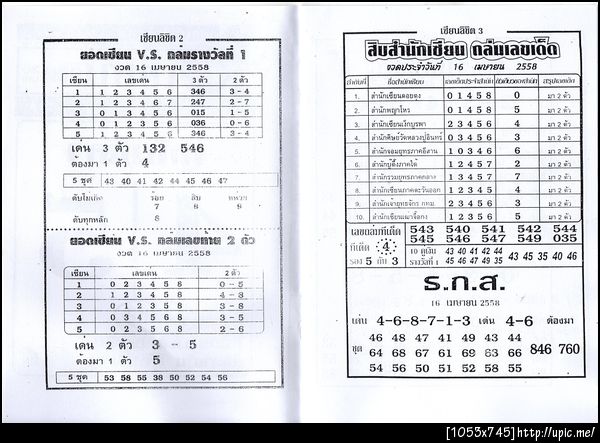 เซียนลิขิต 2
ยอดเซียน V.S. ถล่มรางวัลที่ 1
งวด 16 เมษายน 2558
เซียน เลขเด่น 3 ตัว 2 ตัว
1 1 2 3 4 5 6 346 3-4
2 1 2 3 4 6 7 247 2-7
3 0 1 3 4 5 6 015 1-5
4 0 1 3 4 5 6 036 0-6
5 1 2 3 4 5 6 346 3-4
เด่น 3 ตัว 132 546
ต้องมา 1 ตัว 4
5 ชุด 43 40 41 42 44 45 46 47
ดับไม่เกิด ร้อย สิบ หน่วย
7 8 9
ดับทุกหลัก 8
ยอดเซียน V.S. ถล่มเลขท้าย 2 ตัว
งวด 16 เมษายน 2558
เซียน เลขเด่น 2 ตัว
1 0 2 3 4 5 8 0-5
2 1 2 3 4 5 8 4-8
3 0 1 2 3 5 8 3-8
4 0 3 4 5 6 8 3-5
5 0 1 2 5 6 8 2-6
เด่น 2 ตัว 3 - 5
ต้องมา 1 ตัว 5
5 ชุด 53 58 55 38 50 52 54 56
เซียนลิขิต 3
สิบสำนักเซียน ถล่มเลขเด็ด
งวดประจำวันที่ 16 เมษายน 2558
ลำดับที่ ชื่อสำนักเซียน
1. สำนักเซียนดอยตุง 0 1 4 5 8 0 มา 2 ตัว
2. สำนักพญาโหร 0 1 4 5 8 5 มา 2 ตัว
3. สำนักเซียนเว็กบูรพา 2 3 4 5 6 3 มา 2 ตัว
4. สำนักศิษย์วัดหลวงปู่อินทร์ 0 3 4 5 6 3 มา 2 ตัว
5. สำนักจอมยุทธภาคอีสาน 1 0 3 4 6 6 มา 2 ตัว
6. สำนักปู่อึ้งภาคใต้ 1 2 4 5 7 2 มา 2 ตัว
7. สำนักรวมยุทธภาคกลาง 1 3 4 5 7 7 มา 2 ตัว
8. สำนักเซียนภาคตะวันออก 1 2 3 4 5 4 มา 2 ตัว
9. สำนักเจ้ายุทธจักร กทม. 0 3 4 5 6 3 มา 2 ตัว
10. สำนักเซียนแผ่าจี้อกง 1 2 3 5 6 5 มา 2 ตัว
เลขถล่มทีเด็ด 543 540 541 542 544
545 546 547 549 035
ทีเด็ด 4 10 คู่เงิน 43 40 41 42 44 43 45 35 40 46
รอง 5 กับ 3 รางวัลที่ 1 45 46 47 49 03
ธ.ก.ส.
16 เมษายน 2558
เด่น 4-6-8-7-1-3 เด่น 4-6 ต้องมา
46 48 47 41 49 43 40
ชุด 64 68 67 61 69 63 66 846 760
54 56 50 51 52 58 55
[1053x745]http://upic.me/